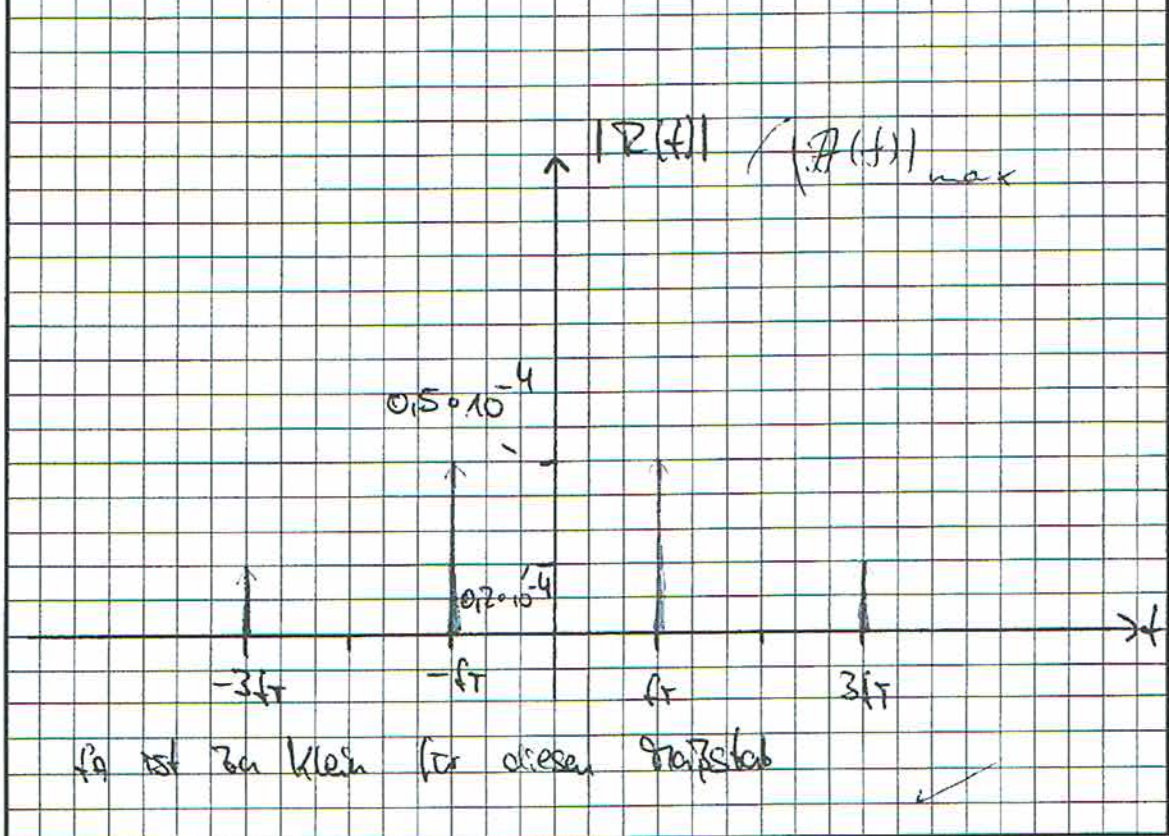 |R(f)| / |A(f)|max
0,5∘10⁻⁴
0,2∘10⁻⁴
-3fT
-fT
fT
3fT
f
fA ist zu klein für diesen Maßstab